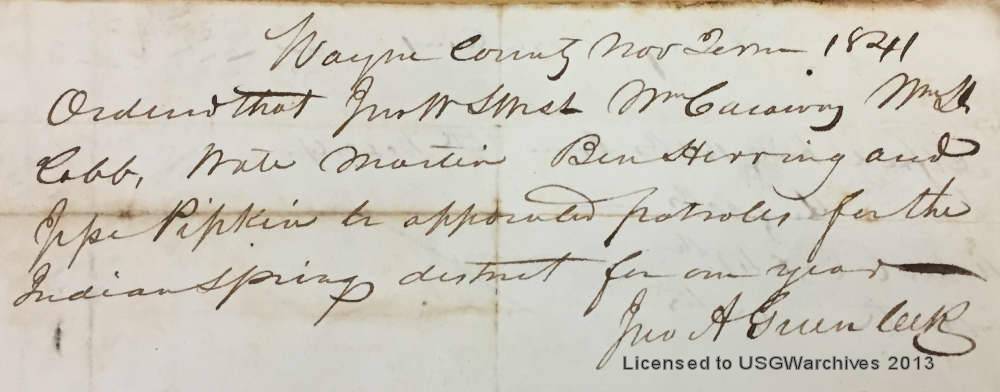 Wayne County Nov Term 1841
Ordered that Jno W West Wm Caraway Wm H
Cobb, Nate Martin Ben Herring and
Pipkin be appointed patroles for the
Indian Springs district for one year
Jno A Green clk
Licensed to USGWarchives 2013